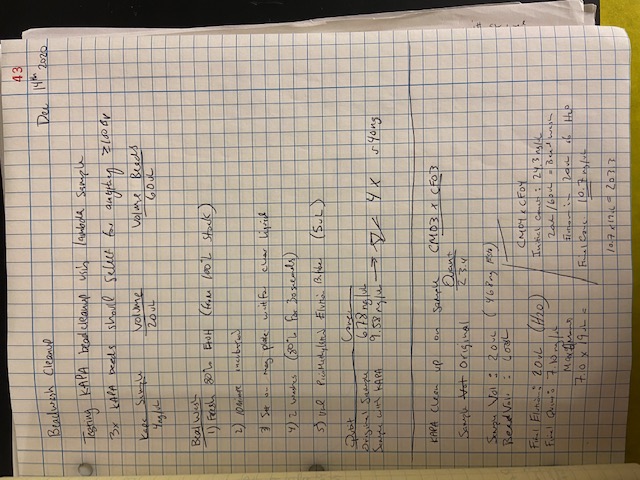 43
Beadwash Cleanup
Dec 14th 2020
Testing KAPA bead cleanup using lambda Sample
3x KAPA beads should select for anything ≥100bp
Kapa Sample Volume Volume Beads
4ng/uL 20uL 60uL
Bead Wash
1) Fresh 80% EtOH (from 100% Stock)
2) 10 minute incubation
3) Set on mag plate wait for clear liquid
4) 2 washes (80% for 30 seconds)
5) used PicoMethyl Elution Buffer (5uL)
Qubit Conc
Original Sample 6.78 ng/uL
Sample with KAPA 9.58 ng/uL → 4x 40ng
KAPA Clean up on Sample CM03 x CF03
Quant
Sample Original 23.4
Sample Vol: 20uL (468ng)
Bead Vol: 60uL
Final Elution: 20uL (H2O)
Final Quant: 7.10 ng/uL
7.0 x 19uL =
CM04 x CF04
Initial Conc: 24.3 ng/uL
20uL/60uL = Bead wash
Elution in 20uL of H2O
Final Conc. 10.7 ng/uL
10.7 x 19uL = 203.3